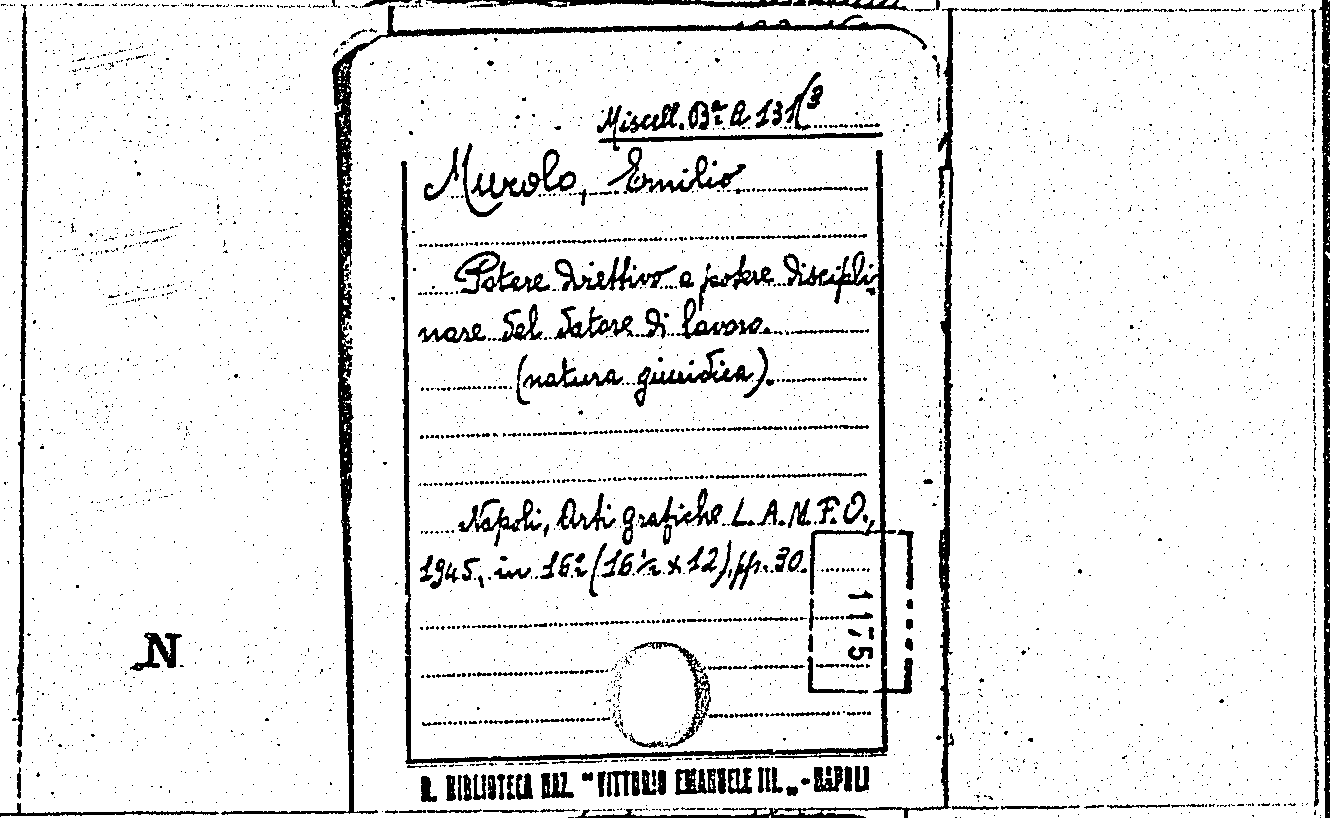 Miscell. Bª A 131(3
Murolo, Emilio
Potere direttivo e potere discipli-
nare del datore di lavoro.
(natura giuridica).
Napoli, Arti grafiche L.A.N.F.O.,
1945, in 16º (16½ x 12) pp. 30.
1175
N
R. BIBLIOTECA NAZ. "VITTORIO EMANUELE III„ - NAPOLI